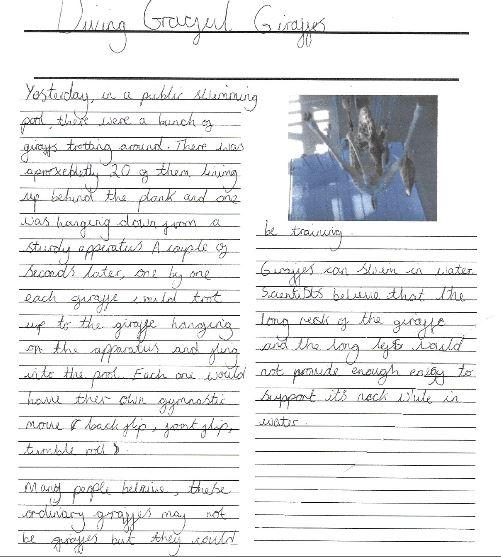 Diving Graceful Giraffes
Yesterday, in a public swimming
pool, there were a bunch of
giraffs trotting around. There was
aproxebtly 20 of them lining
up behind the plank and one
was hanging down from a
sturdy apparatus A couple of
seconds later, one by one
each giraffe would trot
up to the giraffe hanging
on the apparatus and fling
into the pool. Each one would
have ther own gymnastic
move ( backflip, frontflip,
tumble roll ).
Many people beleive, these
ordinary giraffes may not
be giraffes but they could
be training.
Giraffes can swim in water
Scientists believe that the
long neck of the giraffe
and the long legs would
not provide enough energy to
support it's neck while in
water.